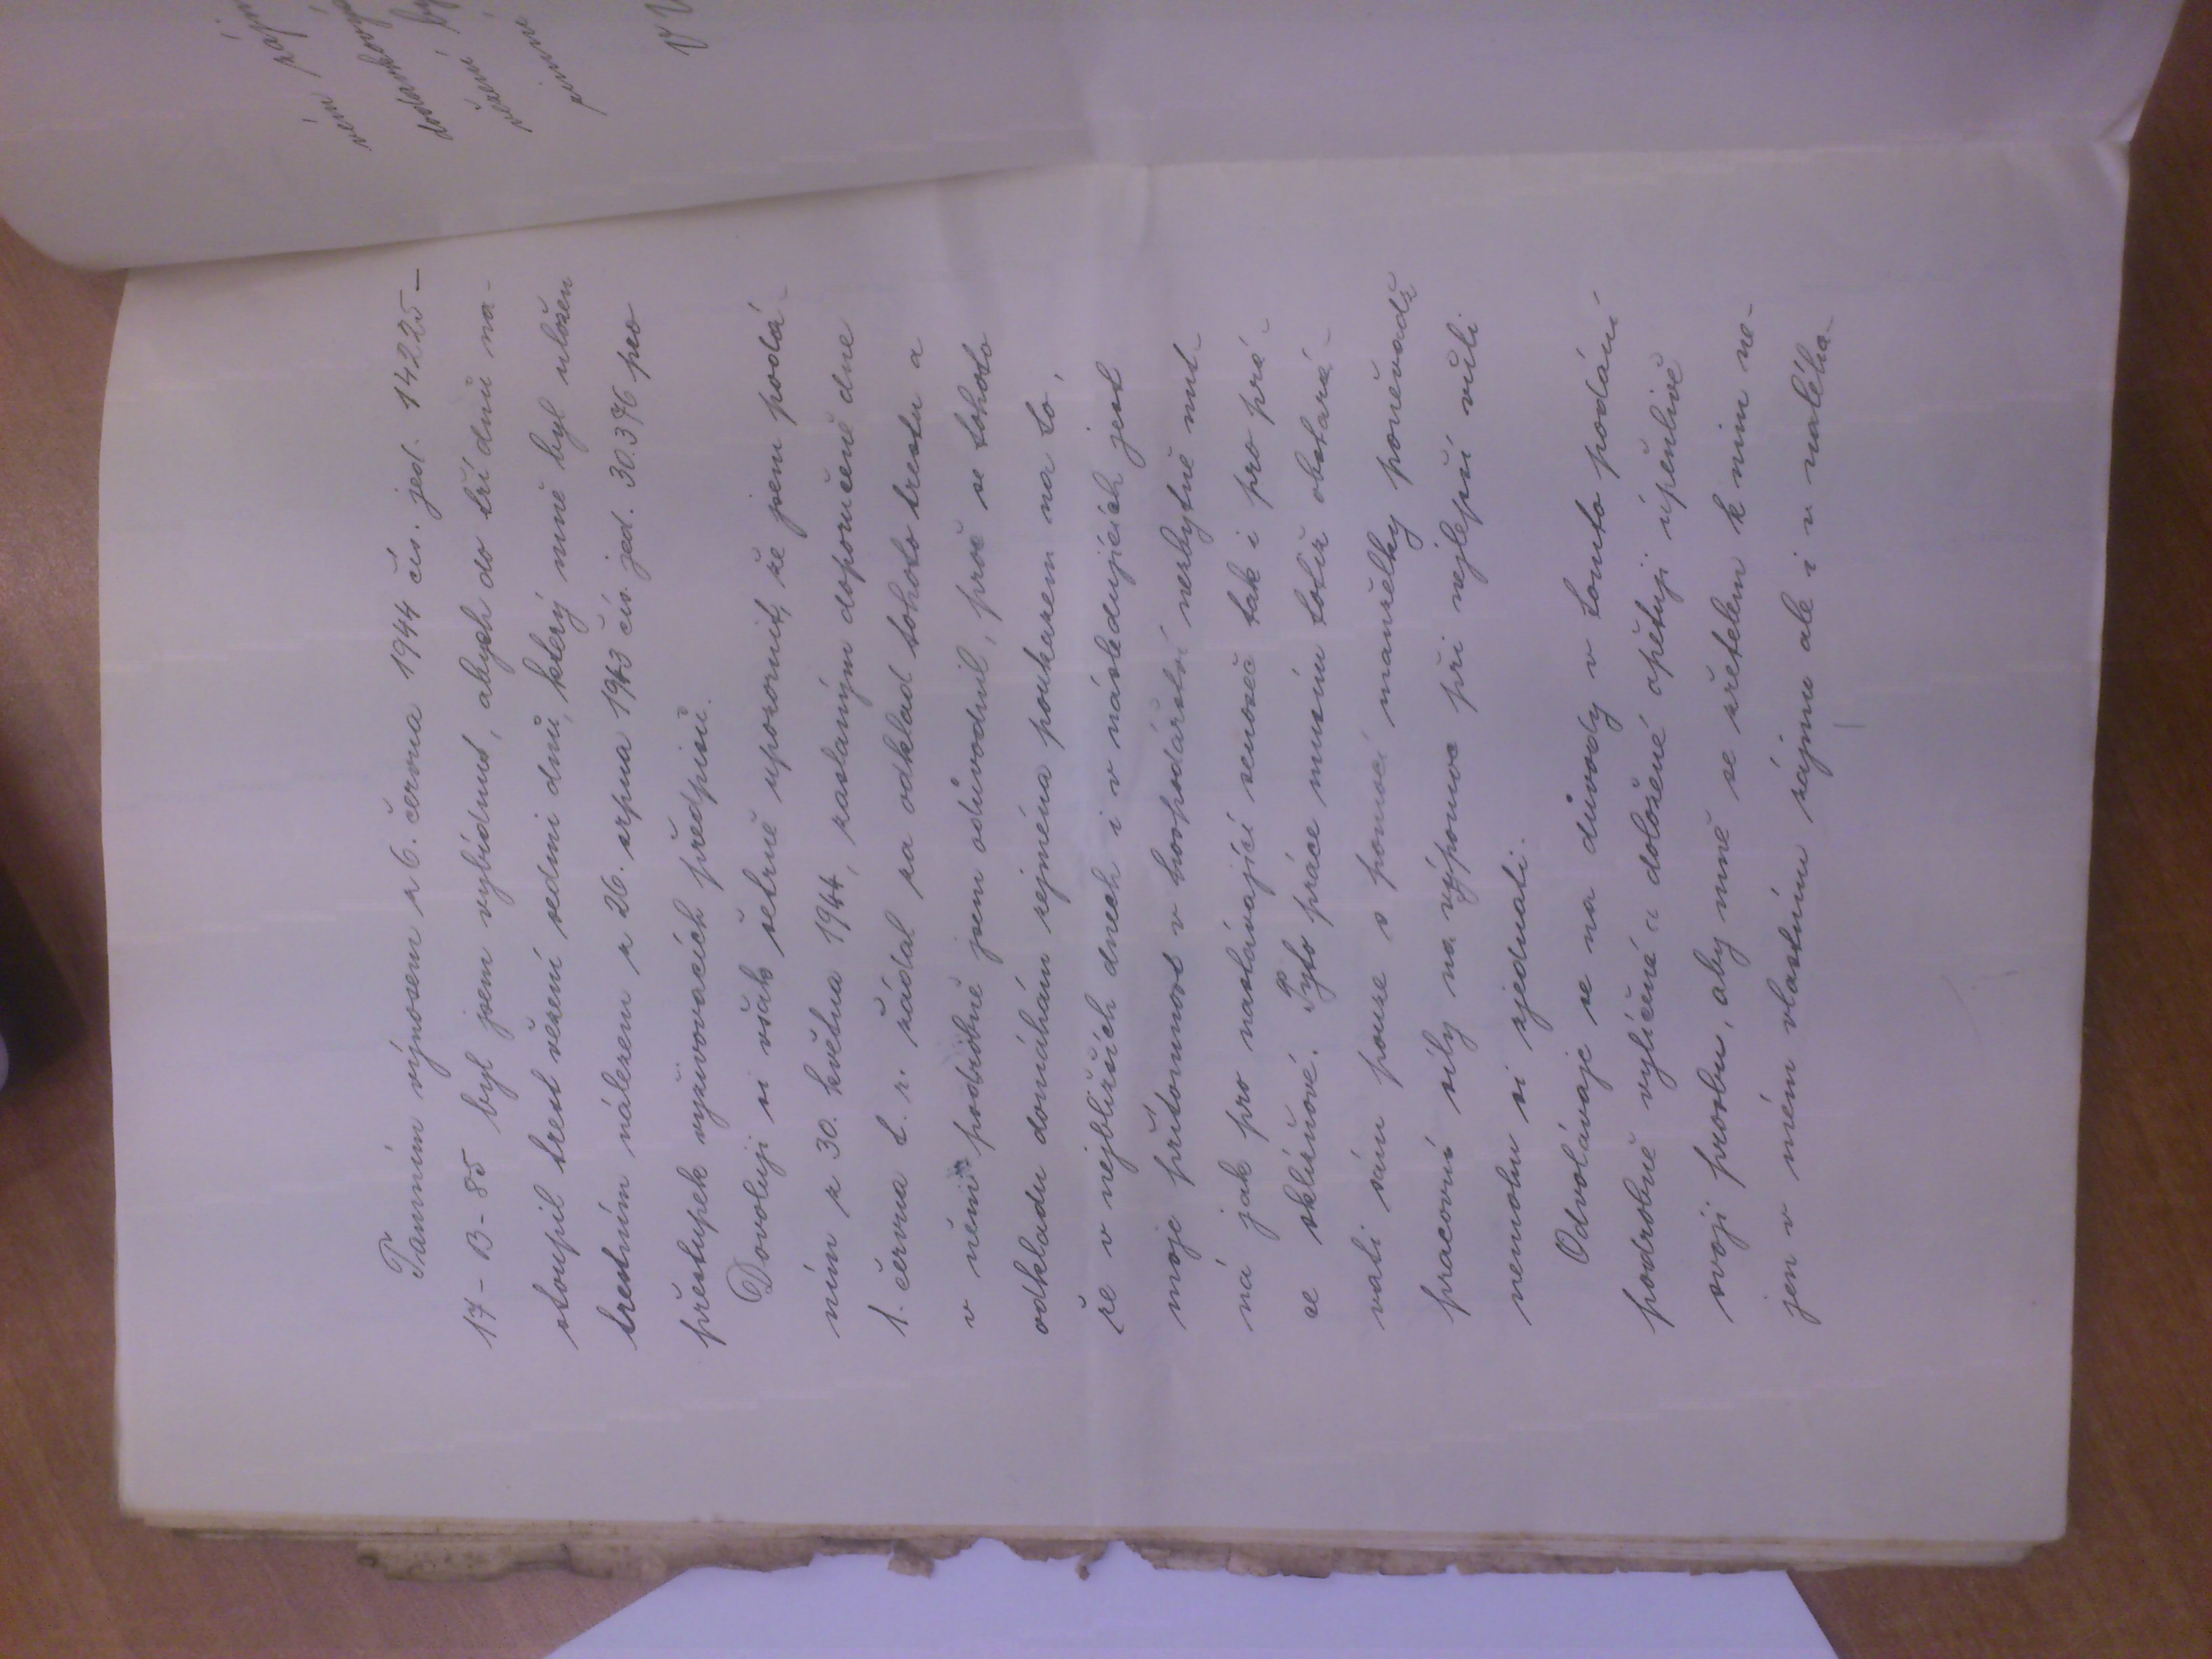 Tamním výnosem z 6. června 1944 čís. jed. 14225-
17-B-85 byl jsem vybídnut, abych do tří dnů na-
stoupil trest vězení sedmi dnů, který mně byl uložen
trestním nálezem z 26. srpna 1943 čís. jed. 30.376 pro
přestupek vyživovacích předpisů.
Dovoluji si však šetrně upozornit, že jsem podá-
ním z 30. května 1944, zaslaným doporučeně dne
1. června t. r. žádal za odklad tohoto trestu a
v něm podrobně jsem odůvodnil, proč se tohoto
odkladu domáhám zejména poukazem na to,
že v nejbližších dnech i v následujících jest
moje přítomnost v hospodářství nezbytně nut-
ná jak pro nastávající senoseč tak i pro prá-
ce sklizňové. Tyto práce musím totiž obstará-
vati sám pouze s pomocí manželky poněvadž
pracovní síly na výpomoc při nejlepší vůli
nemohu si zjednati.
Odvolávaje se na důvody v tomto podání
podrobně vylíčené a doložené opětuji úpěnlivě
svoji prosbu, aby mně se zřetelem k nim ne-
jen v mém vlastním zájmu ale i v naléha-
vém zájm
dodavkový
vězení by
zimní
V